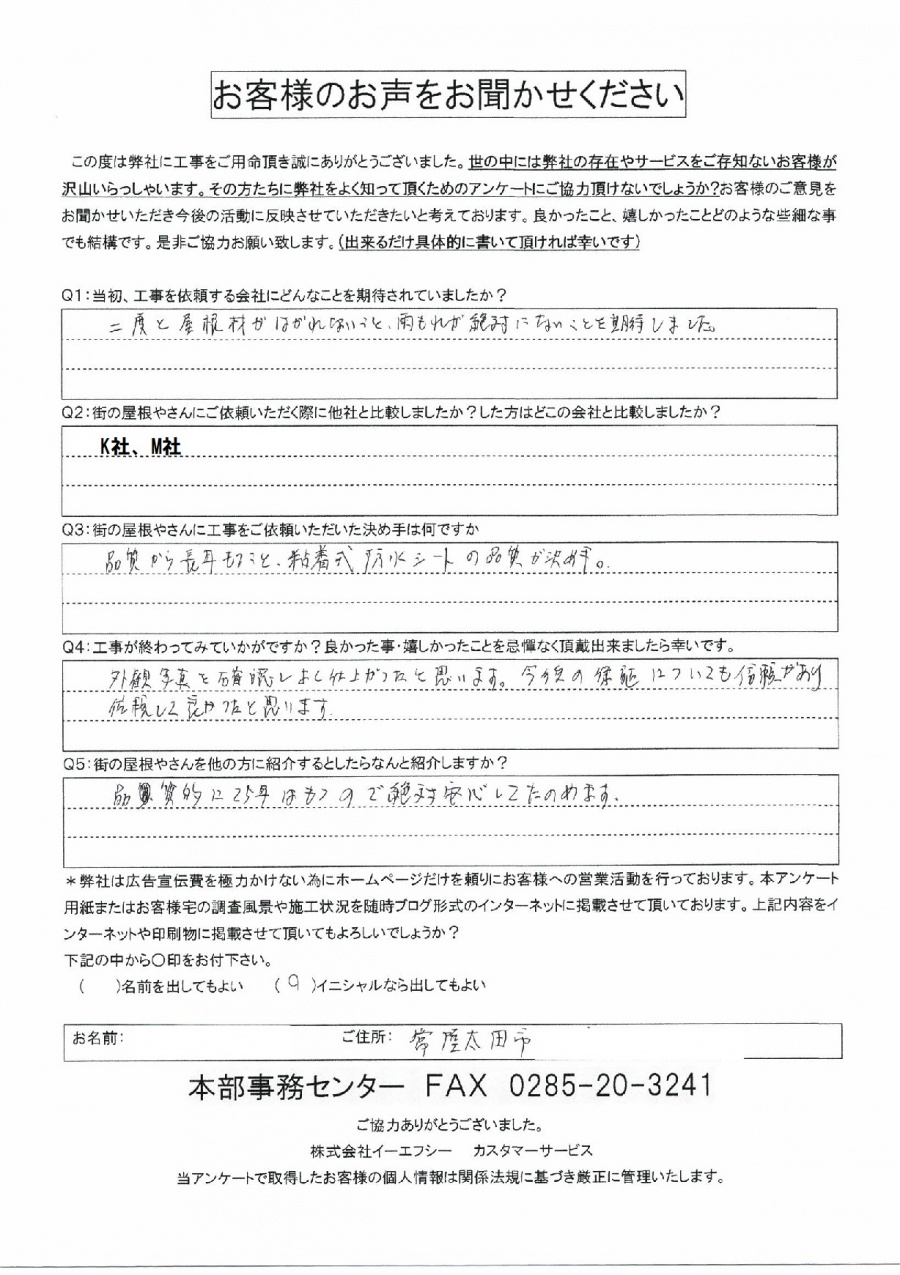 お客様のお声をお聞かせください
この度は弊社に工事をご用命頂き誠にありがとうございました。世の中には弊社の存在やサービスをご存知ないお客様が
沢山いらっしゃいます。その方たちに弊社をよく知って頂くためのアンケートにご協力頂けないでしょうか?お客様のご意見を
お聞かせいただき今後の活動に反映させていただきたいと考えております。良かったこと、嬉しかったことどのような些細な事
でも結構です。是非ご協力お願い致します。(出来るだけ具体的に書いて頂ければ幸いです)
Q1:当初、工事を依頼する会社にどんなことを期待されていましたか?
二度と屋根材がはがれないこと、雨もれが絶対にないことを期待しました。
Q2:街の屋根やさんにご依頼いただく際に他社と比較しましたか?した方はどこの会社と比較しましたか?
K社、M社
Q3:街の屋根やさんに工事をご依頼いただいた決め手は何ですか
品質から長年もつこと、粘着式防水シートの品質が決め手。
Q4:工事が終わってみていかがですか?良かった事・嬉しかったことを忌憚なく頂戴出来ましたら幸いです。
外観写真を確認しよく仕上がったと思います。今後の保証についても信頼があり
依頼して良かったと思います。
Q5:街の屋根やさんを他の方に紹介するとしたらなんと紹介しますか?
品質的に25年はもつので絶対安心してたのめます。
*弊社は広告宣伝費を極力かけない為にホームページだけを頼りにお客様への営業活動を行っております。本アンケート
用紙またはお客様宅の調査風景や施工状況を随時ブログ形式のインターネットに掲載させて頂いております。上記内容をイ
ンターネットや印刷物に掲載させて頂いてもよろしいでしょうか?
下記の中から〇印をお付下さい。
( )名前を出してもよい (○)イニシャルなら出してもよい
お名前: ご住所: 常陸太田市
本部事務センター FAX 0285-20-3241
ご協力ありがとうございました。
株式会社イーエフシー カスタマーサービス
当アンケートで取得したお客様の個人情報は関係法規に基づき厳正に管理いたします。